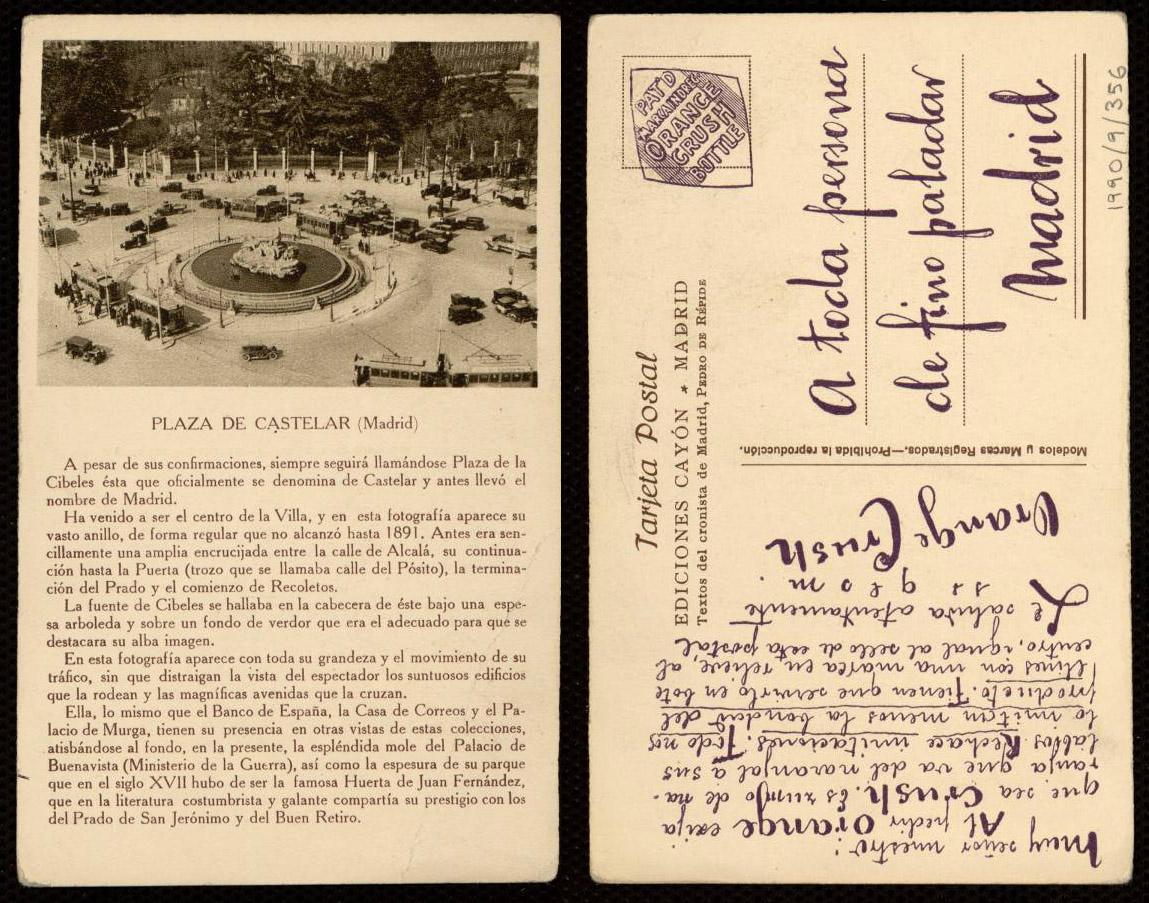 PLAZA DE CASTELAR (Madrid)
A pesar de sus confirmaciones, siempre seguirá llamándose Plaza de la
Cibeles ésta que oficialmente se denomina de Castelar y antes llevó el
nombre de Madrid.
Ha venido a ser el centro de la Villa, y en esta fotografía aparece su
vasto anillo, de forma regular que no alcanzó hasta 1891. Antes era sen-
cillamente una amplia encrucijada entre la calle de Alcalá, su continua-
ción hasta la Puerta (trozo que se llamaba calle del Pósito), la termina-
ción del Prado y el comienzo de Recoletos.
La fuente de Cibeles se hallaba en la cabecera de éste bajo una espe-
sa arboleda y sobre un fondo de verdor que era el adecuado para que se
destacara su alba imagen.
En esta fotografía aparece con toda su grandeza y el movimiento de su
tráfico, sin que distraigan la vista del espectador los suntuosos edificios
que la rodean y las magníficas avenidas que la cruzan.
Ella, lo mismo que el Banco de España, la Casa de Correos y el Pa-
lacio de Murga, tienen su presencia en otras vistas de estas colecciones,
atisbándose al fondo, en la presente, la espléndida mole del Palacio de
Buenavista (Ministerio de la Guerra), así como la espesura de su parque
que en el siglo XVII hubo de ser la famosa Huerta de Juan Fernández,
que en la literatura costumbrista y galante compartía su prestigio con los
del Prado de San Jerónimo y del Buen Retiro.
Tarjeta Postal
EDICIONES CAYÓN * MADRID
Textos del cronista de Madrid, PEDRO DE RÉPIDE
PAT'D
ORANGE
CRUSH
BOTTLE
A toda persona
de fino paladar
Madrid
1990/9/356
Modelos y Marcas Registrados.—Prohibida la reproducción.
Muy señor nuestro:
Al pedir Orange exija
que sea Crush. Es zumo de na-
ranja que va del naranjal a sus
labios Rechace imitaciones. Todo nos
lo imitan menos la bondad del
producto. Tienen que servirlo en bote
llines con una marca en relieve, al
centro, igual al sello de esta postal
Le saluda atentamente
s s q e s m.
Orange Crush